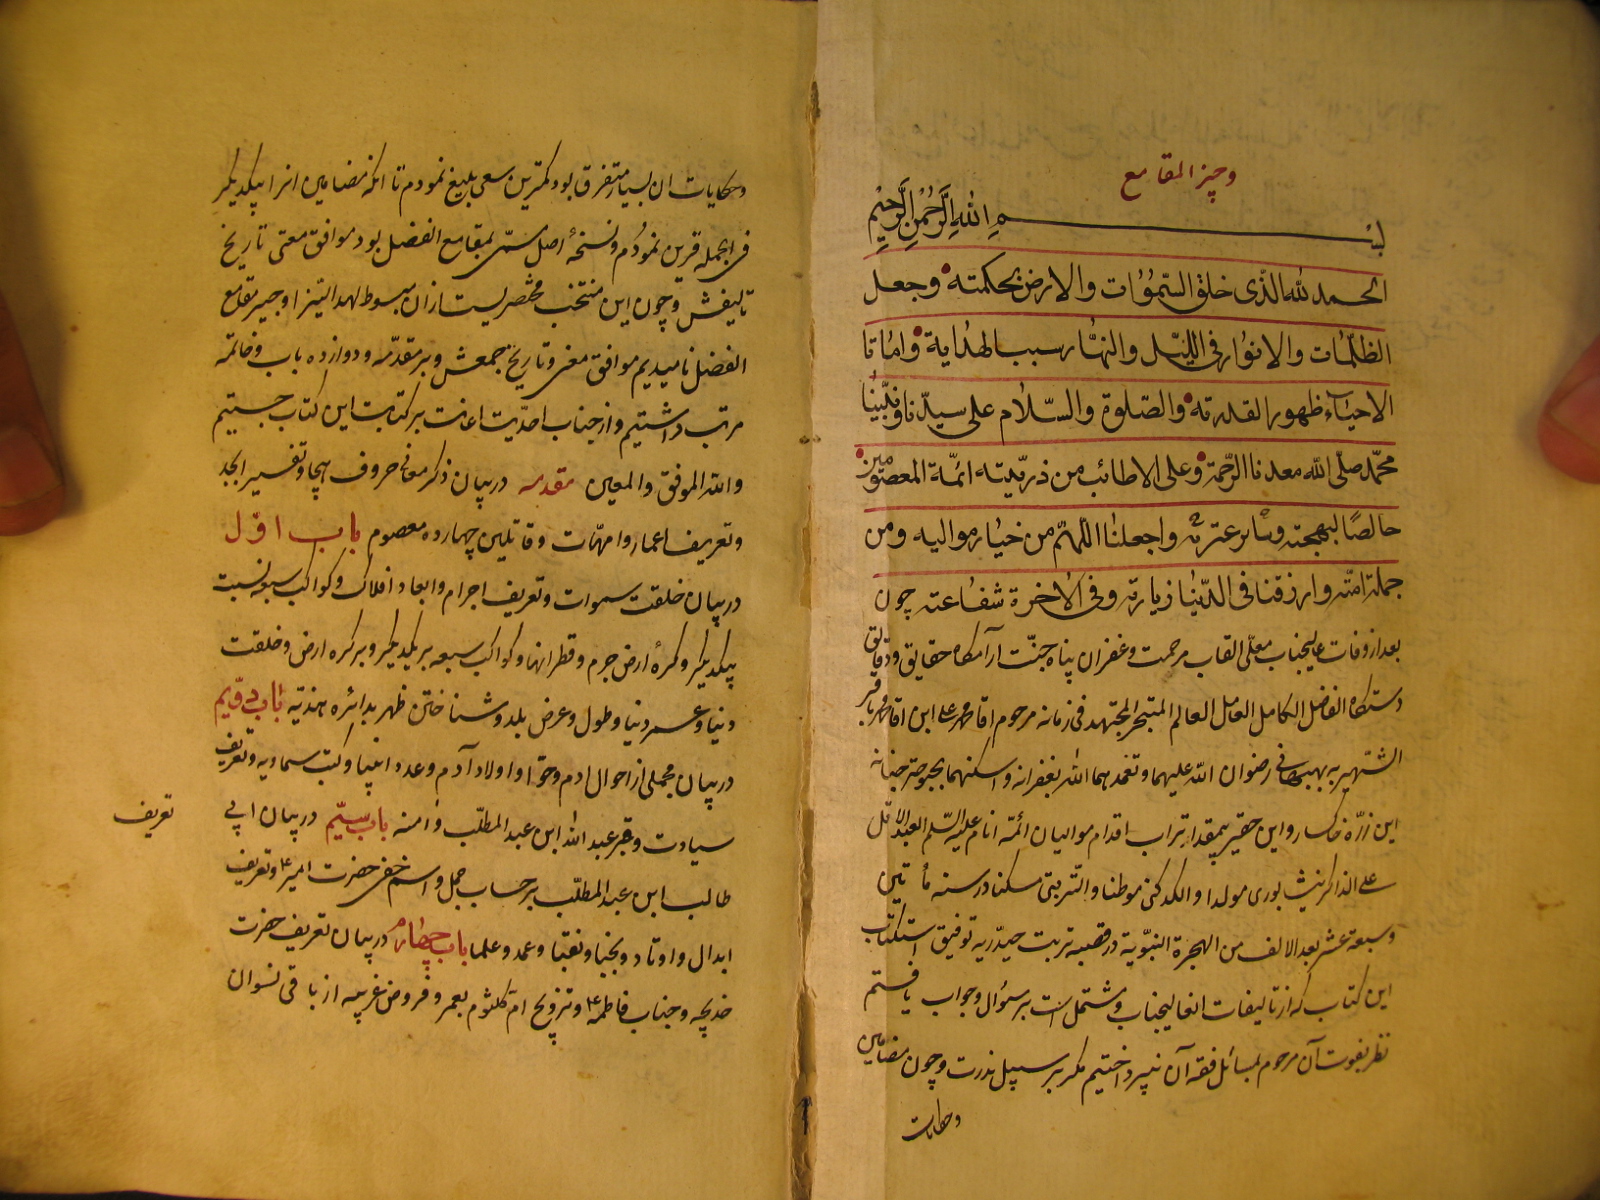 وجیز المقامع
بسم الله الرحمن الرحیم
الحمد لله الذی خلق السموات والارض بحکمته وجعل
الظلمات والانوار فی اللیل والنهار سببا لهدایة واماتا
الاحیاء ظهورا لقدرته والصلوة والسلام علی سیدنا ونبینا
محمد صلی الله معدنا الرحمة وعلی الاطائب من ذریته ائمة المعصومین
خالصا لبهجته وسائر عترته واجعلنا اللهم من خیار موالیه ومن
جملة امته وارزقنا فی الدنیا زیارته وفی الاخرة شفاعته چون
بعد از وفات عالیجناب معلی القاب مرحمت وغفران پناه جنت آرامگاه حقایق ودقایق
دستگاه الفاضل الکامل العامل العالم المتبحر المجتهد فی زمانه مرحوم اقا محمد علی ابن اقا محمد باقر
الشهیر به بهبهانی رضوان الله علیهما وتغمدهما الله بغفرانه واسکنهما بحبوحة جنانه
این ذره خاکسار واین حقیر بیمقدار تراب اقدام موالیان ائمه انام علیه السلم العبد الاقل
علی الذاکر نیشابوری مولدا والکدکنی موطنا والتربتی مسکنا در سنه مأتین
وسبعة عشر بعد الالف من الهجرة النبویة در قصبه تربت حیدریه توفیق استکتاب
این کتاب که از تالیفات انعالیجناب ومشتمل است بر سؤال وجواب یافتم
نظر بفوت آن مرحوم بمسائل فقه آن نپرداختیم مگر بر سبیل ندرت وچون مضامین
وحکایات
وحکایات ان بسیار متفرق بود کمترین سعی بلیغ نمودم تا انکه مضامین انرا بیکدیگر
فی الجمله قرین نمودم ونسخهٔ اصل مسمی بمقامع الفضل بود موافق معنی تاریخ
تالیفش وچون این منتخب مختصریست از ان مبسوط لهذا انیز او جیز مقامع
الفضل نامیدیم موافق معنی وتاریخ جمعش وبر مقدمه ودوازده باب وخاتمه
مرتب داشتیم واز جناب احدیت اعانت بر کتابت این کتاب جستیم
والله الموفق والمعین مقدمه در بیان ذکر معانی حروف هجا وتفسیر ابجد
وتعریف اعمار وامهات وقاتلین چهارده معصوم باب اول
در بیان خلقت سموات وتعریف اجرام وابعاد افلاک وکواکب سبعه نسبت
بیکدیگر وکرهٔ ارض جرم وقطر انها وکواکب سبعه بر یکدیگر وبر کره ارض وخلقت
دنیا وعمر دنیا وطول وعرض بلد وشناختن ظهر بدائره هندیه باب دویم
در بیان مجملی از احوال ادم وحوا واولاد آدم وعدد انبیا وکتب سماویه وتعریف
سیادت وقبر عبد الله ابن عبد المطلب وآمنه باب سیم در بیان ابی
طالب ابن عبد المطلب بر حساب جمل واسم خفی حضرت امیر ع وتعریف
ابدال واوتاد ونجبا ونقبا وعمد وعلما باب چهارم در بیان تعریف حضرت
خدیجه وجناب فاطمه ع وتزویج ام کلثوم بعمر وفروض غریبه از باقی نسوان
تعریف